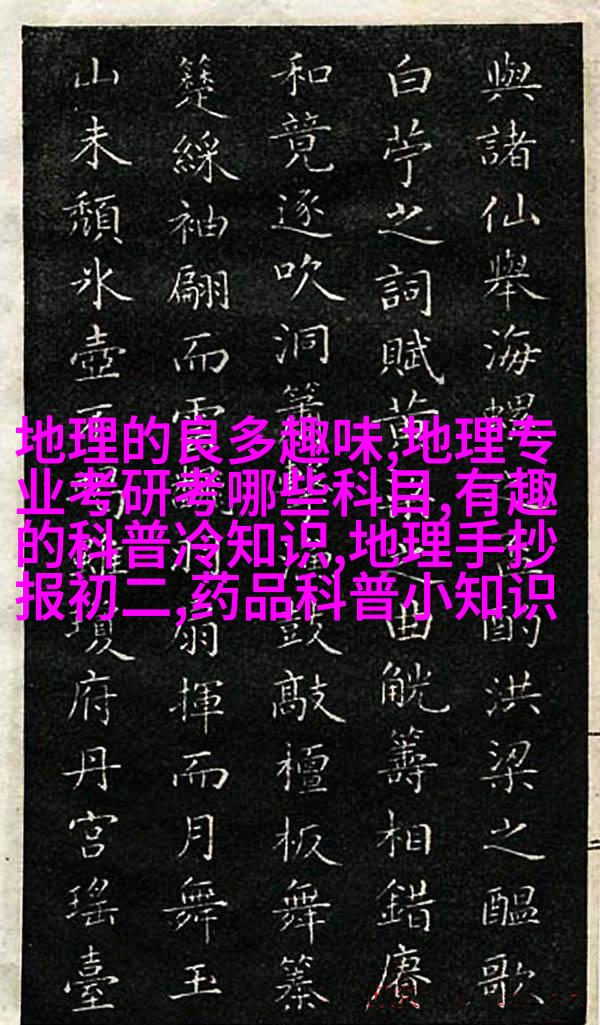 與諸仙舉海酌洪梁之醖歌
白苧之詞賦黄曲觥籌相錯賡
和竟逐吹洞簫鼓敲檀板舞
綵袖翩而雲扇揮而月舞玉
山未頹氷壺瓊府丹宮瑤臺
地理的良多趣味,地理专
业考研考哪些科目,有趣
的科普冷知识,地理手抄
报初二,药品科普小知识